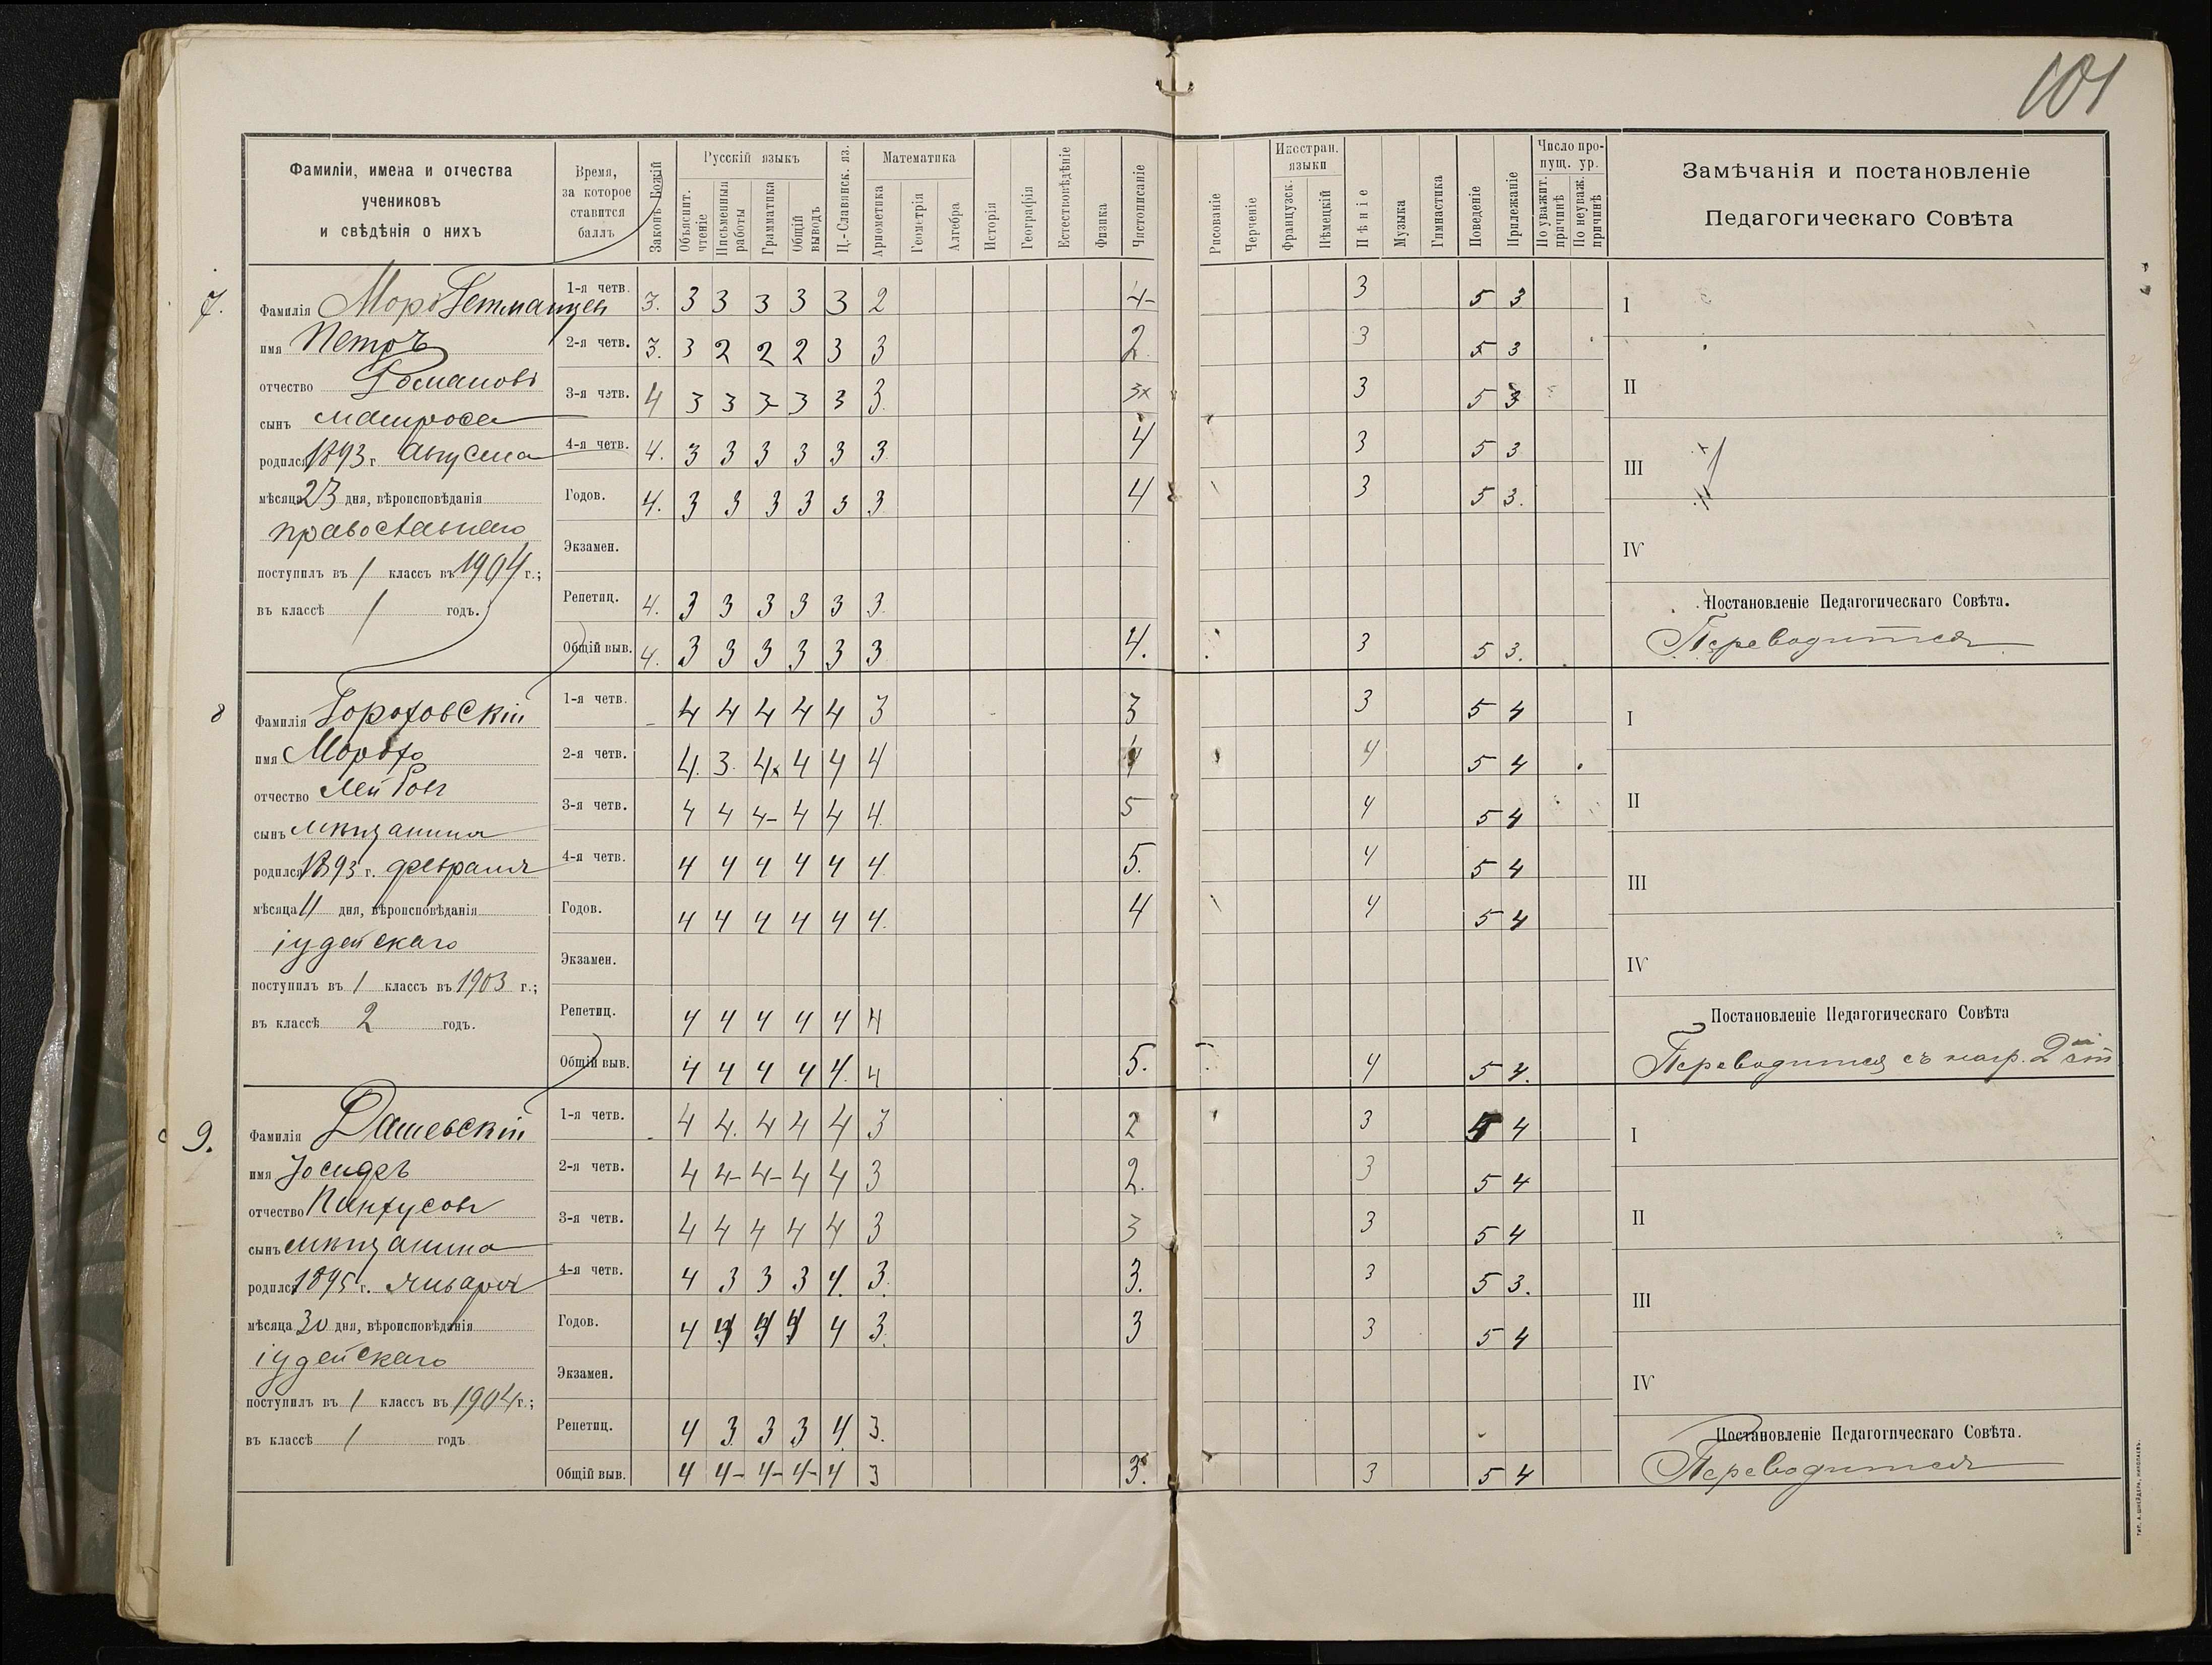 101
Фамиліи, имена и отчества
учениковъ
и свѣдѣнія о нихъ
Время,
за которое
ставится
баллъ
Законъ Божій
Русскій языкъ
Объяснит. чтеніе
Письменныя работы
Грамматика
Общій выводъ
Ц.-Славянск. яз.
Математика
Ариѳметика
Геометрія
Алгебра
Исторія
Географія
Естествовѣдѣніе
Физика
Чистописаніе
Рисованіе
Черченіе
Иностран. языки
Французск.
Нѣмецкій
Пѣніе
Музыка
Гимнастика
Поведеніе
Прилежаніе
Число пропущ. ур.
По уважит. причинѣ
По неуваж. причинѣ
Замѣчанія и постановленіе
Педагогическаго Совѣта
7.
Фамилія Гетманцев
имя Петръ
отчество Романовъ
сынъ матроса
родился 1893 г. Августа
мѣсяца 23 дня, вѣроисповѣданія
православнаго
поступилъ въ 1 классъ въ 1904 г.;
въ классѣ 1 годъ.
1-я четв. 3. 3 3 3 3 3 2 4- 3 5 3
2-я четв. 3. 3 2 2 2 3 3 2 3 5 3
3-я четв. 4 3 3 3- 3 3 3. 3x 3 5 3
4-я четв. 4. 3 3 3 3 3 3 4 3 5 3
Годов. 4. 3 3 3 3 3 3 4 3 5 3.
Экзамен.
Репетиц. 4. 3 3 3 3 3 3.
Общій выв. 4. 3 3 3 3 3 3 4. 3 5 3.
I
II
III
IV
Постановленіе Педагогическаго Совѣта.
Переводится
8
Фамилія Гороховскій
имя Мордхо
отчество Лейбовъ
сынъ мѣщанина
родился 1893 г. февраля
мѣсяца 11 дня, вѣроисповѣданія
іудейскаго
поступилъ въ 1 классъ въ 1903 г.;
въ классѣ 2 годъ.
1-я четв. 4 4 4 4 4 3 3 3 5 4
2-я четв. 4. 3. 4x 4 4 4 4 4 5 4
3-я четв. 4 4 4- 4 4 4. 5 4 5 4
4-я четв. 4 4 4 4 4 4. 5. 4 5 4
Годов. 4 4 4 4 4 4. 4 4 5 4
Экзамен.
Репетиц. 4 4 4 4 4 4
Общій выв. 4 4 4 4 4. 4 5. 4 5 4.
I
II
III
IV
Постановленіе Педагогическаго Совѣта
Переводится съ нагр. 2й ст
9.
Фамилія Дашевскій
имя Іосифъ
отчество Пинхусовъ
сынъ мѣщанина
родился 1895 г. января
мѣсяца 30 дня, вѣроисповѣданія
іудейскаго
поступилъ въ 1 классъ въ 1904 г.;
въ классѣ 1 годъ
1-я четв. 4 4. 4 4 4 3 2 3 5 4
2-я четв. 4 4- 4- 4 4 3 2. 3 5 4
3-я четв. 4 4 4 4 4 3 3 3 5 4
4-я четв. 4 3 3 3 4. 3. 3. 3 5 3.
Годов. 4 4 4 4 4 3. 3 3 5 4
Экзамен.
Репетиц. 4 3 3 3 4. 3.
Общій выв. 4 4- 4- 4- 4 3 3. 3 5 4
I
II
III
IV
Постановленіе Педагогическаго Совѣта.
Переводится
ТИП. А. ШНЕЙДЕРА, НИКОЛАЕВЪ.